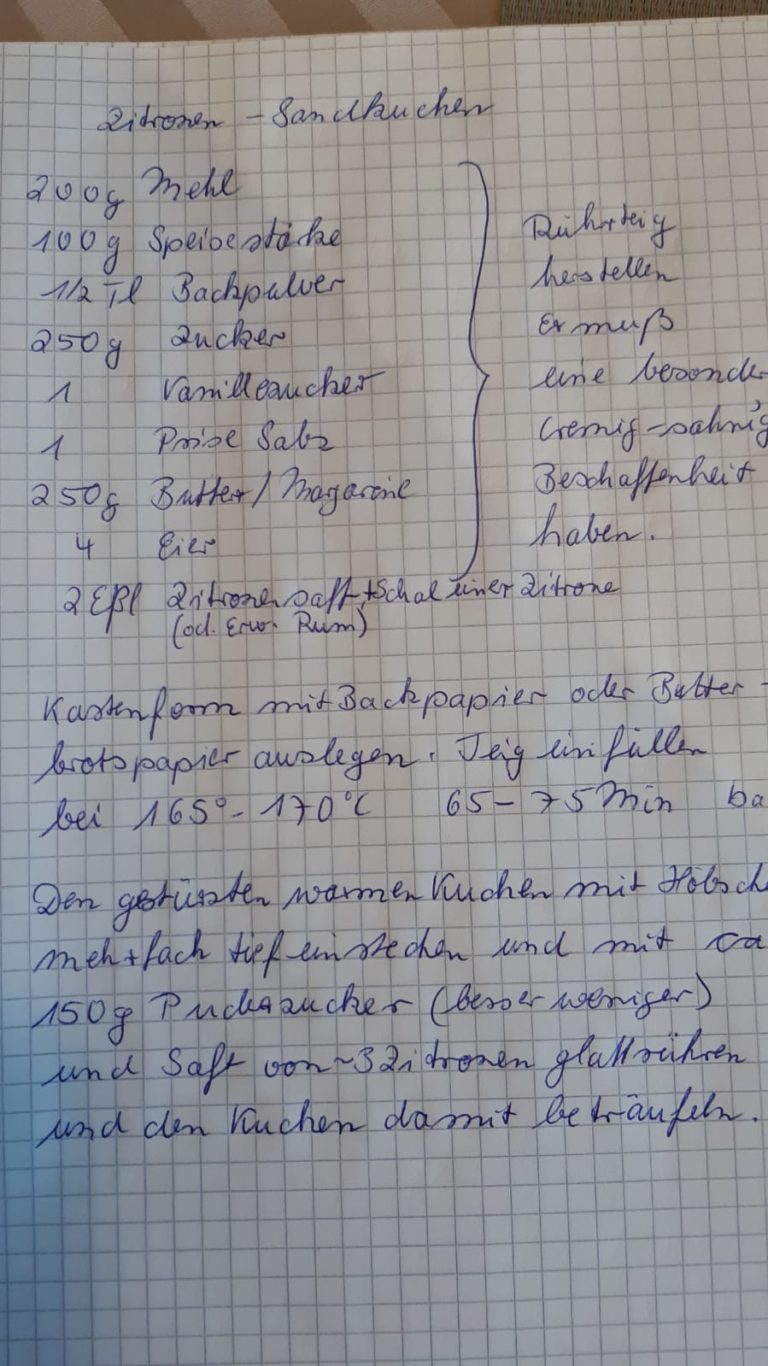 Zitronen - Sandkuchen
200g Mehl
100g Speisestärke
1/2 Tl Backpulver
250g Zucker
1 Vanillezucker
1 Prise Salz
250g Butter/Magarine
4 Eier
2 Eßl Zitronensaft + Schal einer Zitrone
(od. Erw. Rum)
Rührteig
herstellen
Er muß
eine besonde
cremig-sahnig
Beschaffenheit
haben.
Kastenform mit Backpapier oder Butter-
brotspapier auslegen. Teig einfüllen
bei 165°- 170°C 65-75 Min ba
Den gestürzten warmen Kuchen mit Holzsch
mehrfach tief einstechen und mit ca
150g Puderzucker (besser weniger)
und Saft von ~3 Zitronen glattrühren
und den Kuchen damit beträufeln.